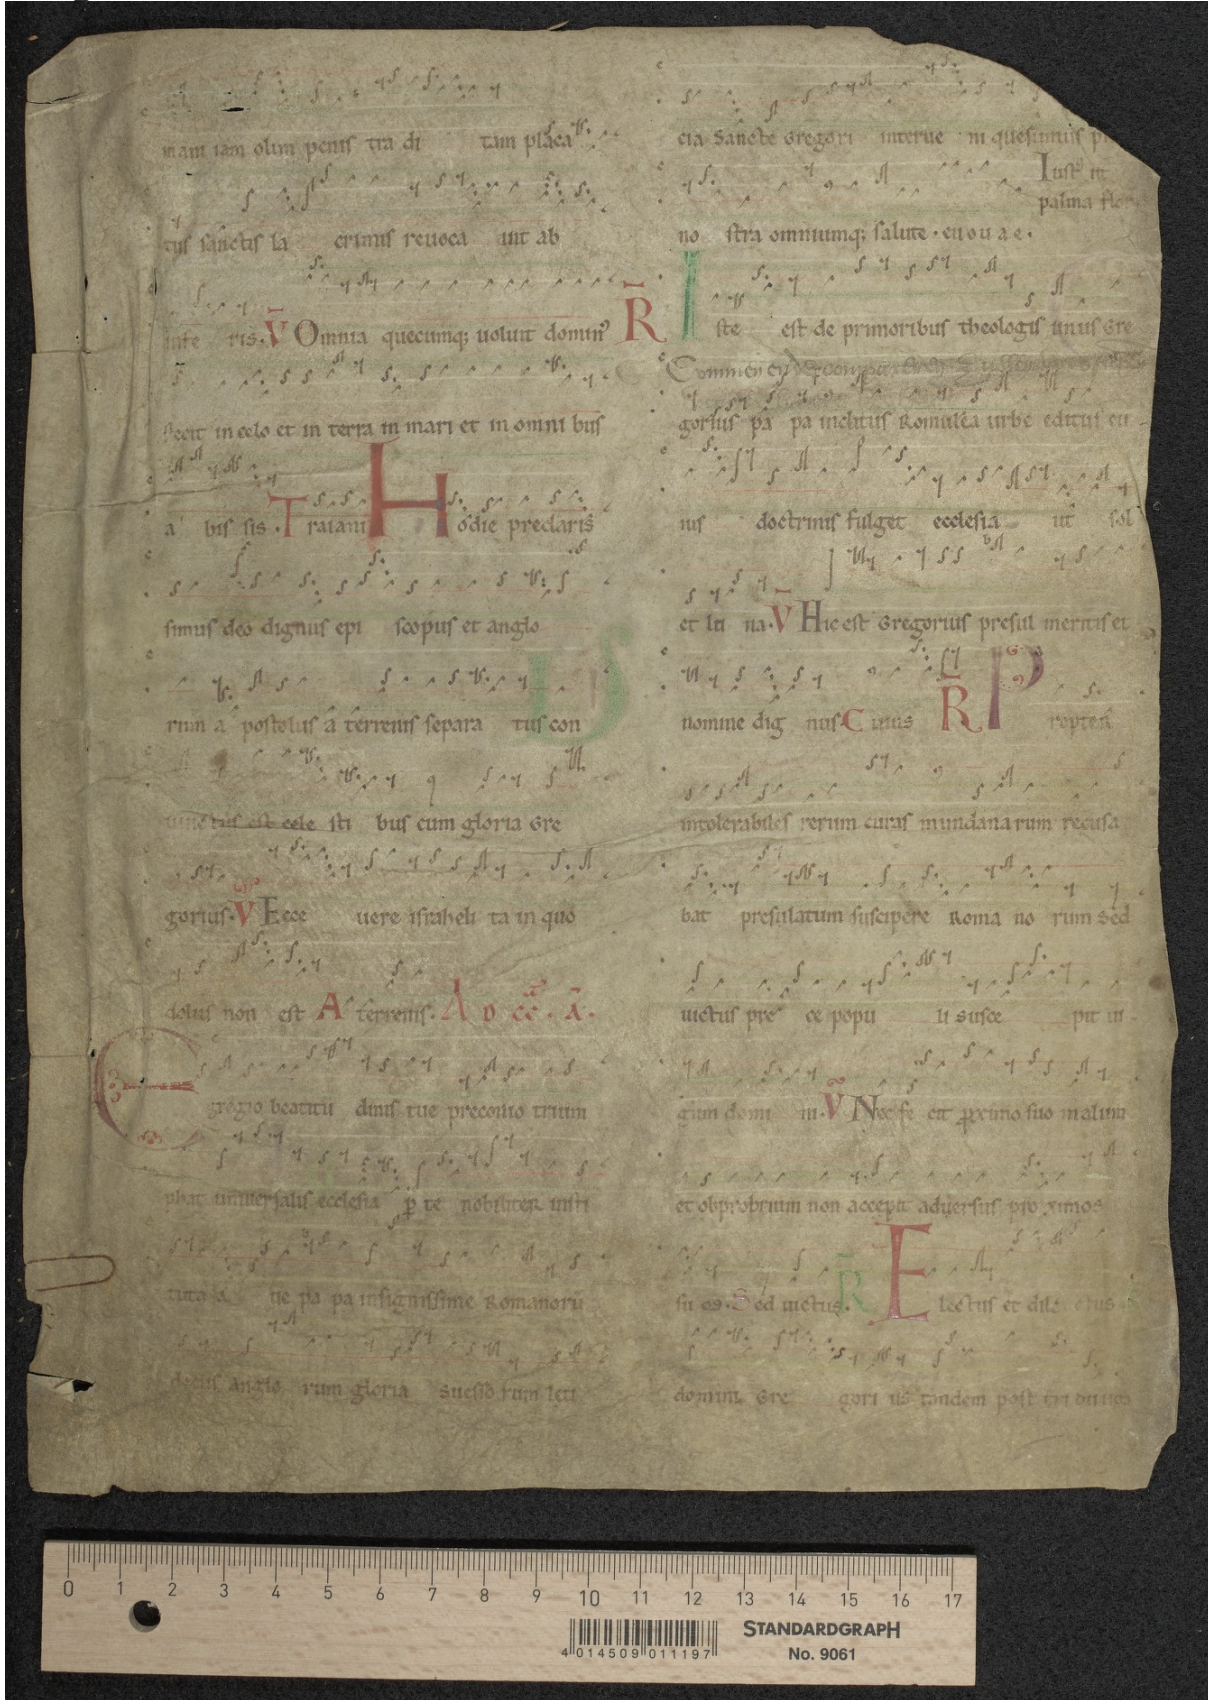 mam iam olim penis tra di tam placa
tus sanctis la crimis reuoca uit ab
infe ris. V Omnia quecumq; uoluit domin⁹
fecit in celo et in terra in mari et in omni bus
a bis sis. Traiani Hodie preclaris
simus deo dignus epi scopus et anglo
rum a postolus a terrenis separa tus con
iunctus est cele sti bus cum gloria Gre
gorius. V Ecce uere israheli ta in quo
dolus non est A terrenis.
Egregio beatitu dinis tue preconio trium
phat uniuersalis ecclesia p te nobiliter insti
tuta o ue pa pa insignissime Romanorū
decus anglo rum gloria
cia Sancte Gregori interue ni quesumus p
Iust⁹ ut
palma flor
no stra omniumq; salute. euouae.
R Iste est de primoribus theologis unus Gre
gorius pa pa inclitus Romulea urbe editus cu
ius doctrinis fulget ecclesia ut sol
et lu na. V Hic est Gregorius presul meritis et
nomine dig nus Cuius R Propter
intolerabiles rerum curas mundana rum recusa
bat presulatum suscipere Roma no rum Sed
uictus pre ce popu li susce pit iu
gum domi ni. V Nec fe cit pximo suo malum
et obprobrium non accepit aduersus pro ximos
su os. Sed uictus. R Electus et dile ctus
domini Gre gori us tandem post
0 1 2 3 4 5 6 7 8 9 10 11 12 13 14 15 16 17
4 014509 011197
STANDARDGRAPH
No. 9061